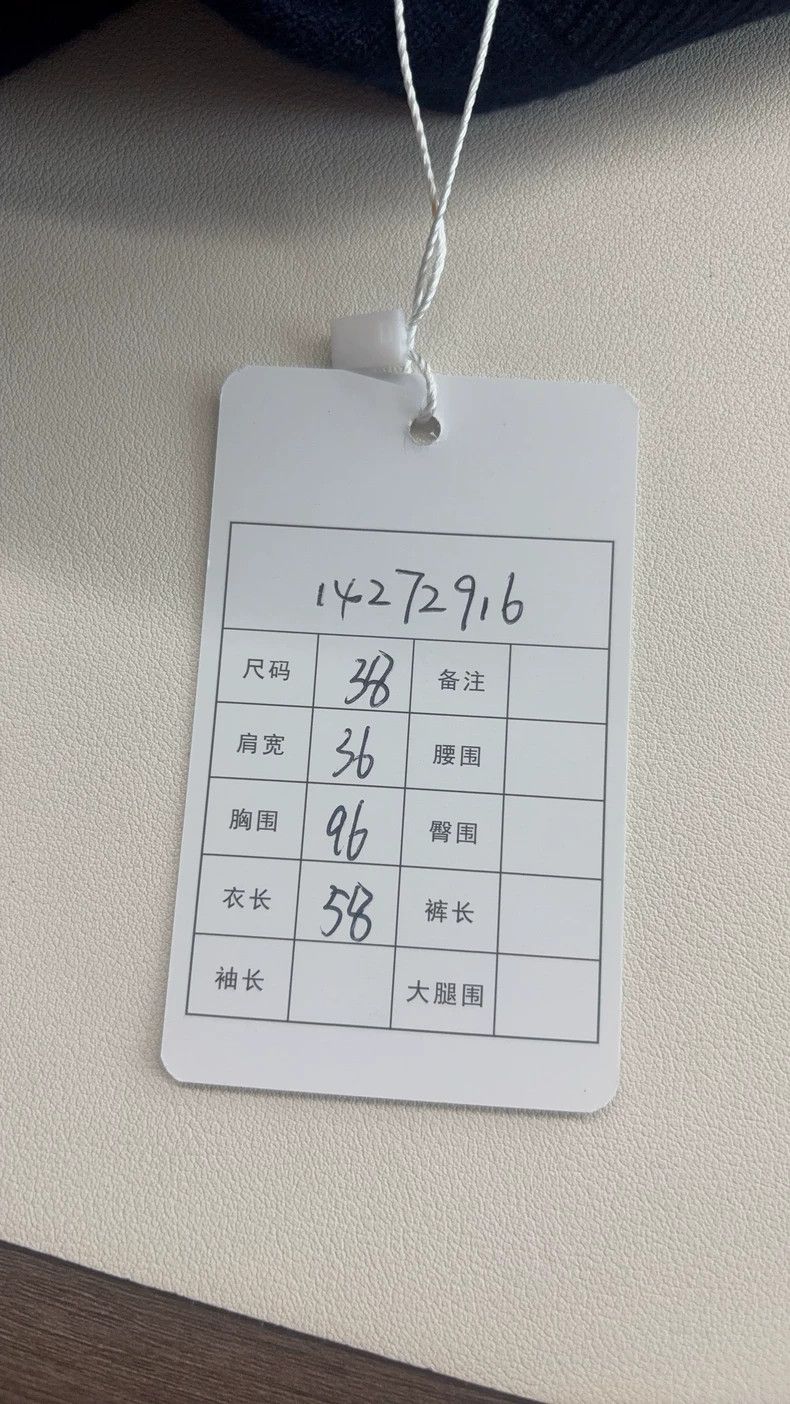 14272916
尺码 38 备注
肩宽 36 腰围
胸围 96 臀围
衣长 58 裤长
袖长 大腿围